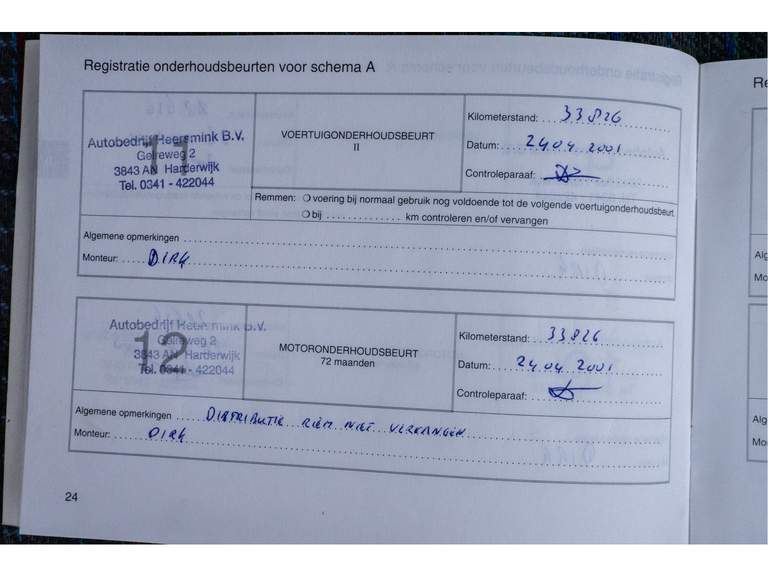 Registratie onderhoudsbeurten voor schema A
Autobedrijf Heersmink B.V.
Gelreweg 2
3843 AN Harderwijk
Tel. 0341 - 422044
11
VOERTUIGONDERHOUDSBEURT
II
Kilometerstand: 33826
Datum: 24 04 2001
Controleparaaf:
Remmen: ❍ voering bij normaal gebruik nog voldoende tot de volgende voertuigonderhoudsbeurt
❍ bij .............. km controleren en/of vervangen
Algemene opmerkingen
Monteur: DIRK
Autobedrijf Heersmink B.V.
Gelreweg 2
3843 AN Harderwijk
Tel. 0341 - 422044
12
MOTORONDERHOUDSBEURT
72 maanden
Kilometerstand: 33826
Datum: 24.04 2001
Controleparaaf:
Algemene opmerkingen DISTRIBUTIE RIEM NIET VERVANGEN
Monteur: DIRK
24
Re
Alg
Mo
Alg
Mo